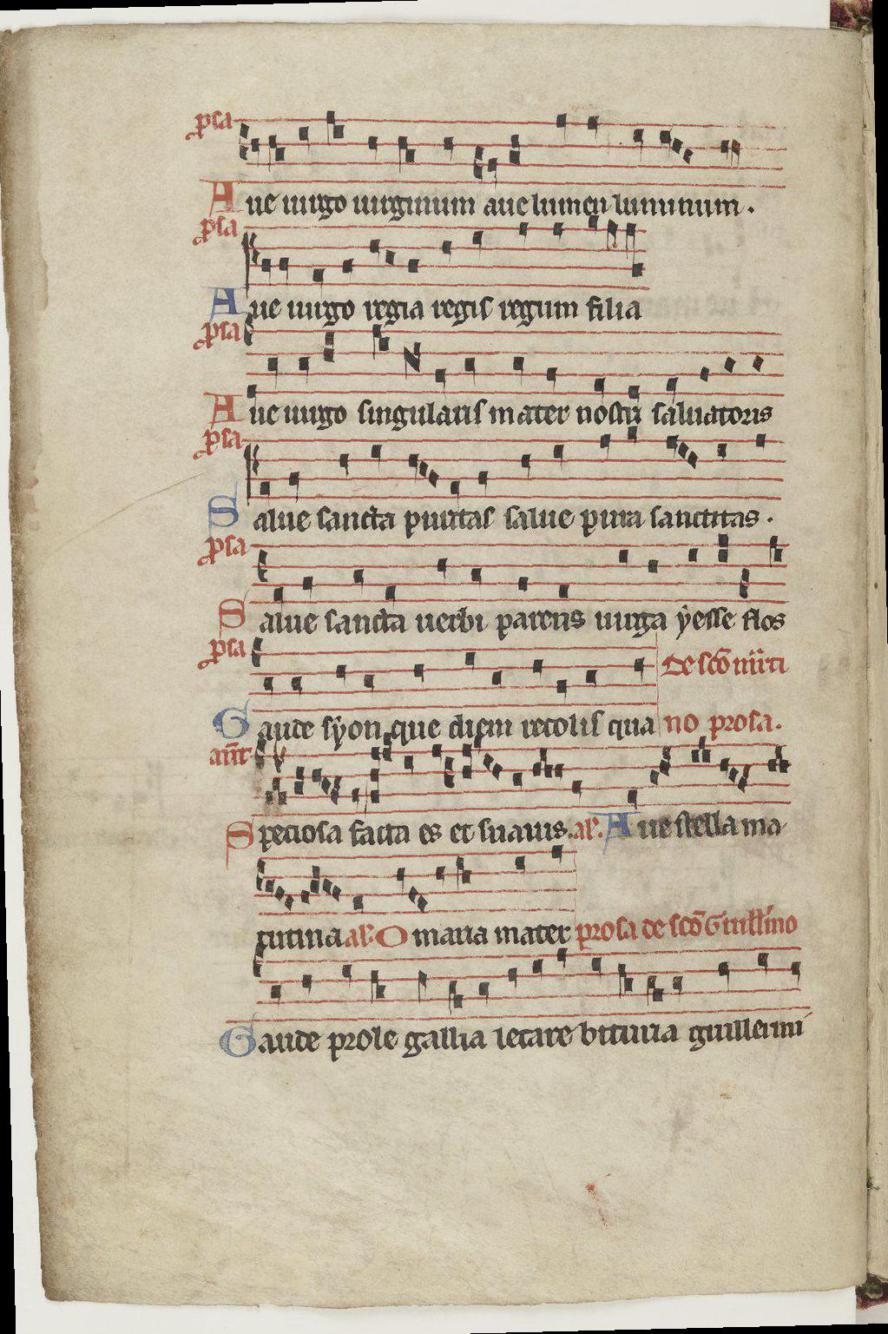 p̱sa
Aue uirgo uirginum aue lumen luminum.
p̱sa
Aue uirgo regia regis regum filia
p̱sa
Aue uirgo singularis mater nostri saluatoris
p̱sa
Salue sancta puritas salue pura sanctitas.
p̱sa
Salue sancta uerbi parens uirga yesse flos
p̱sa
De sc̄o m̄rti
Gaude syon que diem recolis qua no prosa.
ant̄
Speciosa facta es et suauis. al'. Aue stella ma
tutina al'. O maria mater prosa de sc̄o Guillīno
Gaude prole gallia letare bituria guillermi